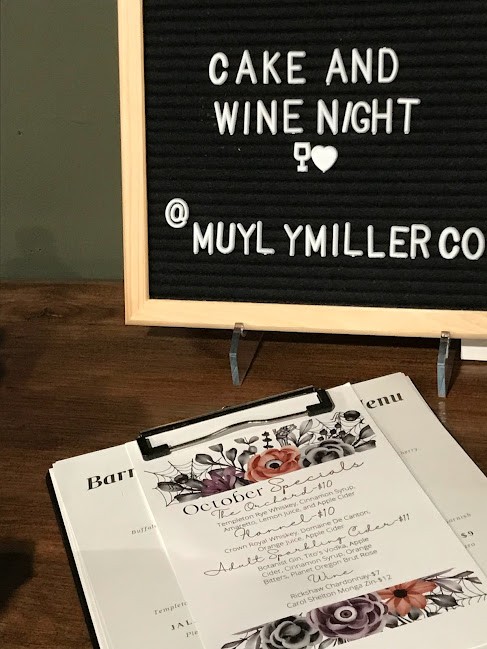 CAKE AND
WINE NIGHT
@
MUYLYMILLERCO
Menu
October Specials
The Orchard-$10
Templeton Rye Whiskey, Cinnamon Syrup,
Amaretto, Lemon Juice, and Apple Cider
Flannel-$10
Crown Royal Whiskey, Domaine De Canton,
Orange Juice, Apple Cider
Adult Sparkling Cider-$11
Botanist Gin, Tito's Vodka, Apple
Cider, Cinnamon Syrup, Orange
Bitters, Planet Oregon Brut Rose
Wine
Rickshaw Chardonnay-7
Carol Shelton Monga Zin-$12
$9